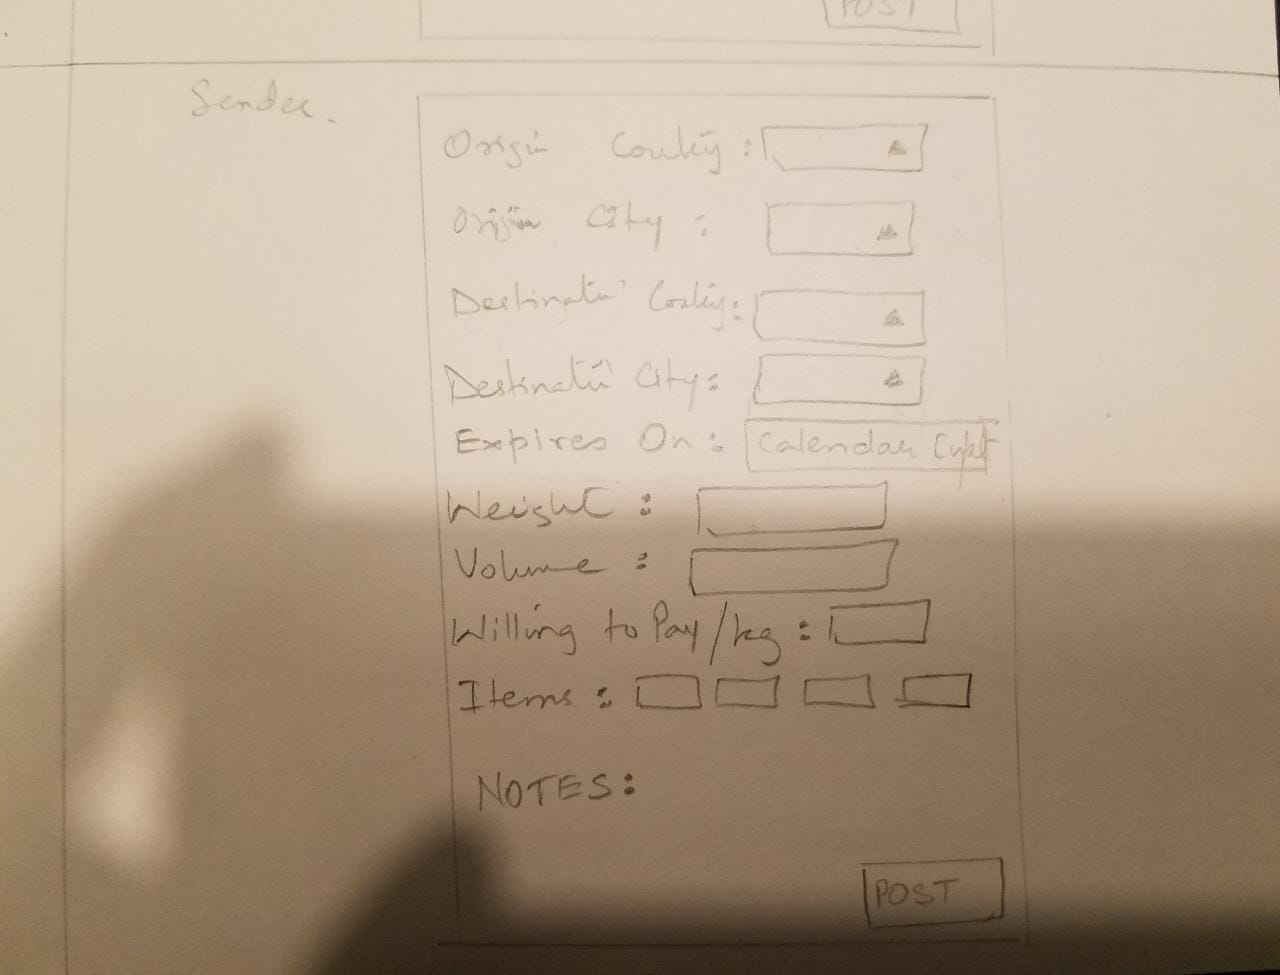 POST
Sender.
Origin Country :
Origin City :
Destination Country :
Destination City :
Expires On : Calendar Input
Weight :
Volume :
Willing to Pay/kg :
Items :
NOTES:
POST